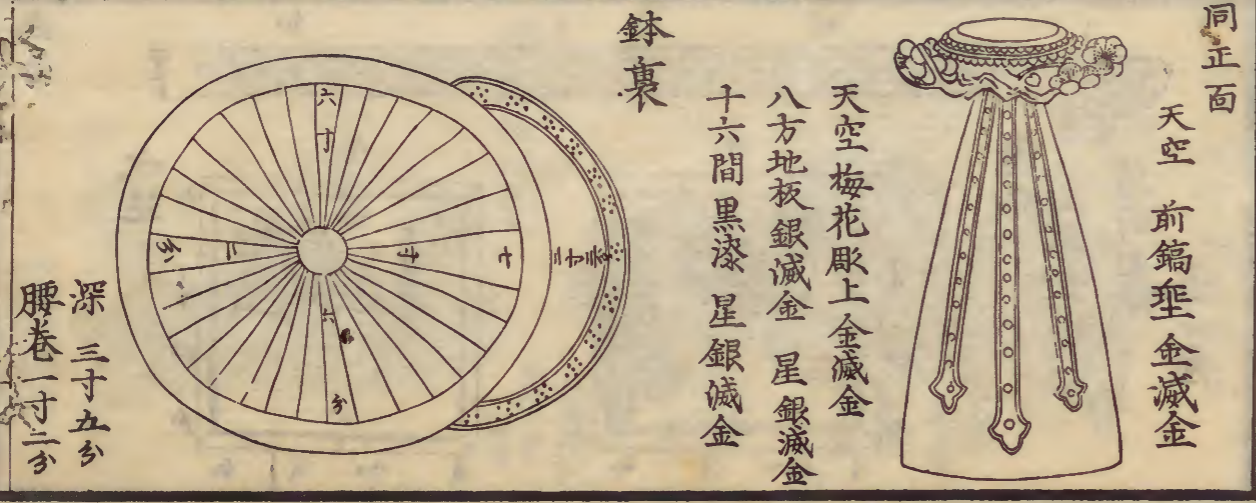 同正面
天空 前鎬垂 金滅金
天空梅花彫上金滅金
八方地板銀滅金 星銀滅金
十六間黒漆 星銀滅金
鉢裏
六寸六分
七寸二分
深 三寸五分
腰巻一寸二分